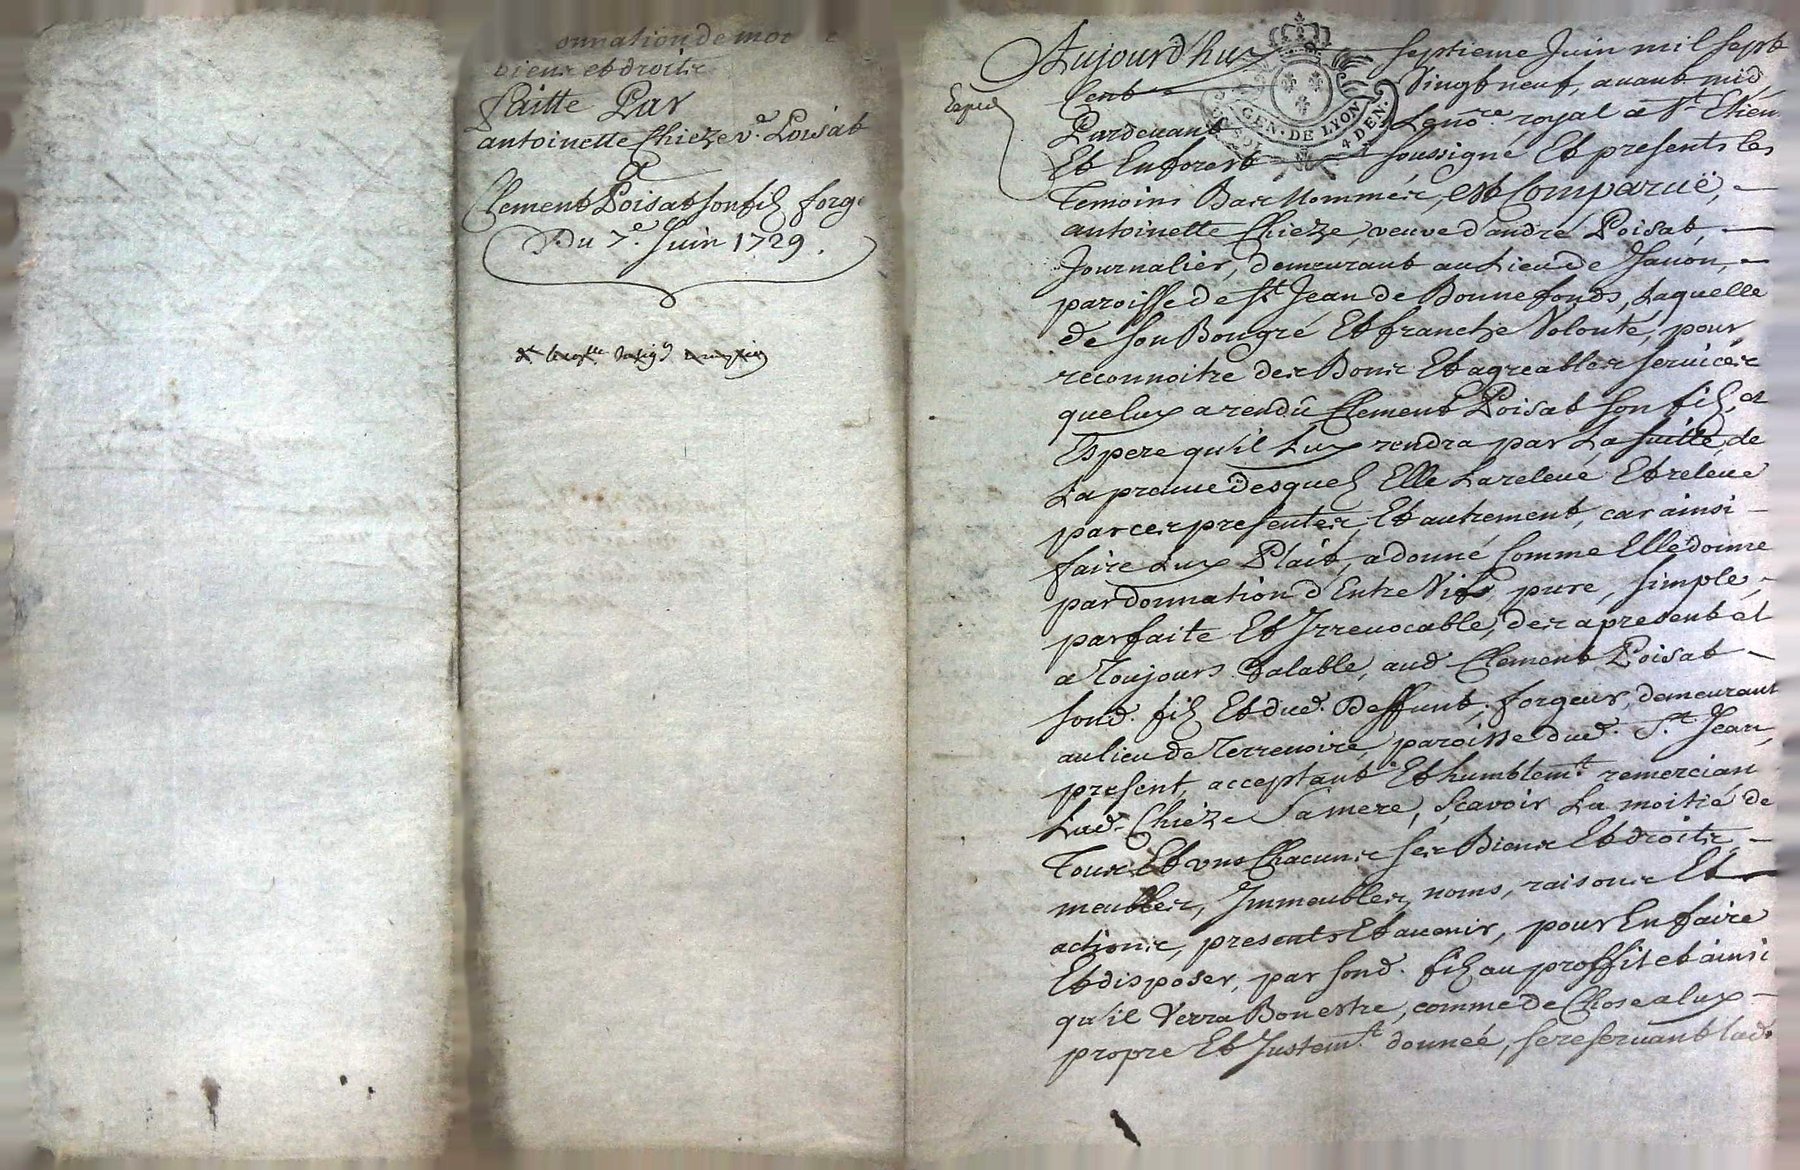 onnation de moi e
biens et droits
faitte Par
antoinette Chieze ve. Poisat
A
Clement Poisat son filz forge
Du 7e. Juin 1729.
Aujourd'huy septieme Juin mil sept
Cent Vingt neuf, avant midy
Expedé
Pardevant Le nore. royal a St. Etien
Et En forest soussigné Et presents les
GEN. DE LYON
4 DEN.
Temoins Bas Nommés, est Comparuë,
antoinette Chieze, veuve d'andré Poisat,
Journalier, demeurant au Lieu de Janon,
paroisse de St. Jean de Bonnefonds, Laquelle
de son Bongré Et franche Volonté, pour
reconnoitre des Bons Et agreables services
que luy a rendû Clement Poisat son filz, et
Espere qu'il Luy rendra par La suitte, de
La preuve desquelz Elle La releué Et releue
par ces presentes, Et autrement, car ainsi
faire Luy Plait, a donné Comme Elle donne
par donnation d'Entre Vifs pure, simple,
parfaite Et Irreuocable, des a present et
a Toujours Valable, aud Clement Poisat
sond. filz Et dud. Deffunt, forgeur, demeurant
au lieu de Terrenoire, paroisse dud. St. Jean,
present, acceptant Et humblemt. remercian
Lad. Chieze Sa mere, Sçavoir La moitié de
Tous Et uns Chacuns ses Biens Et droits,
meubles, Immeubles, noms, raisons Et
actions, presents Et auenir, pour En faire
Et disposer, par sond. filz au proffit et ainsi
qu'il Verra Bon estre, comme de Chose a luy
propre Et Justemt. donneé, se reseruant lad.